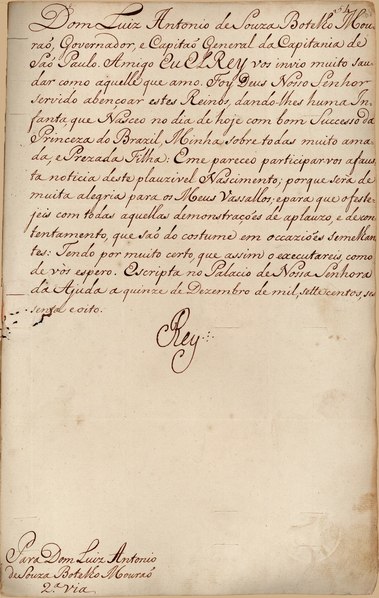 Dom Luiz Antonio de Souza Botelho Mou-
raõ, Governador, e Capitaõ General da Capitania de
Saõ Paulo. Amigo Eu ElRey vos invio muito sau-
dar como aquelle que amo. Foy Deus Nosso Senhor
servido abençoar estes Reinos, dando-lhes huma In-
fanta que Nasceo no dia de hoje com bom Successo da
Princeza do Brazil, Minha sobre todas muito ama-
da, e Prezada Filha: E me pareceo participarvos a faus-
ta noticia deste plauzivel Nascimento; porque será de
muita alegria para os Meus Vassallos; e para que o feste-
jeis com todas aquellas demonstrações de aplauzo, e de con-
tentamento, que saõ do costume em occaziões semelhan-
tes: Tendo por muito certo, que assim o executareis, como
de vós espero. Escripta no Palacio de Nossa Senhora
da Ajuda a quinze de Dezembro de mil, sette centos, ses-
senta e oito.
Rey
Para Dom Luiz Antonio
de Souza Botelho Mouraõ
2.ª via